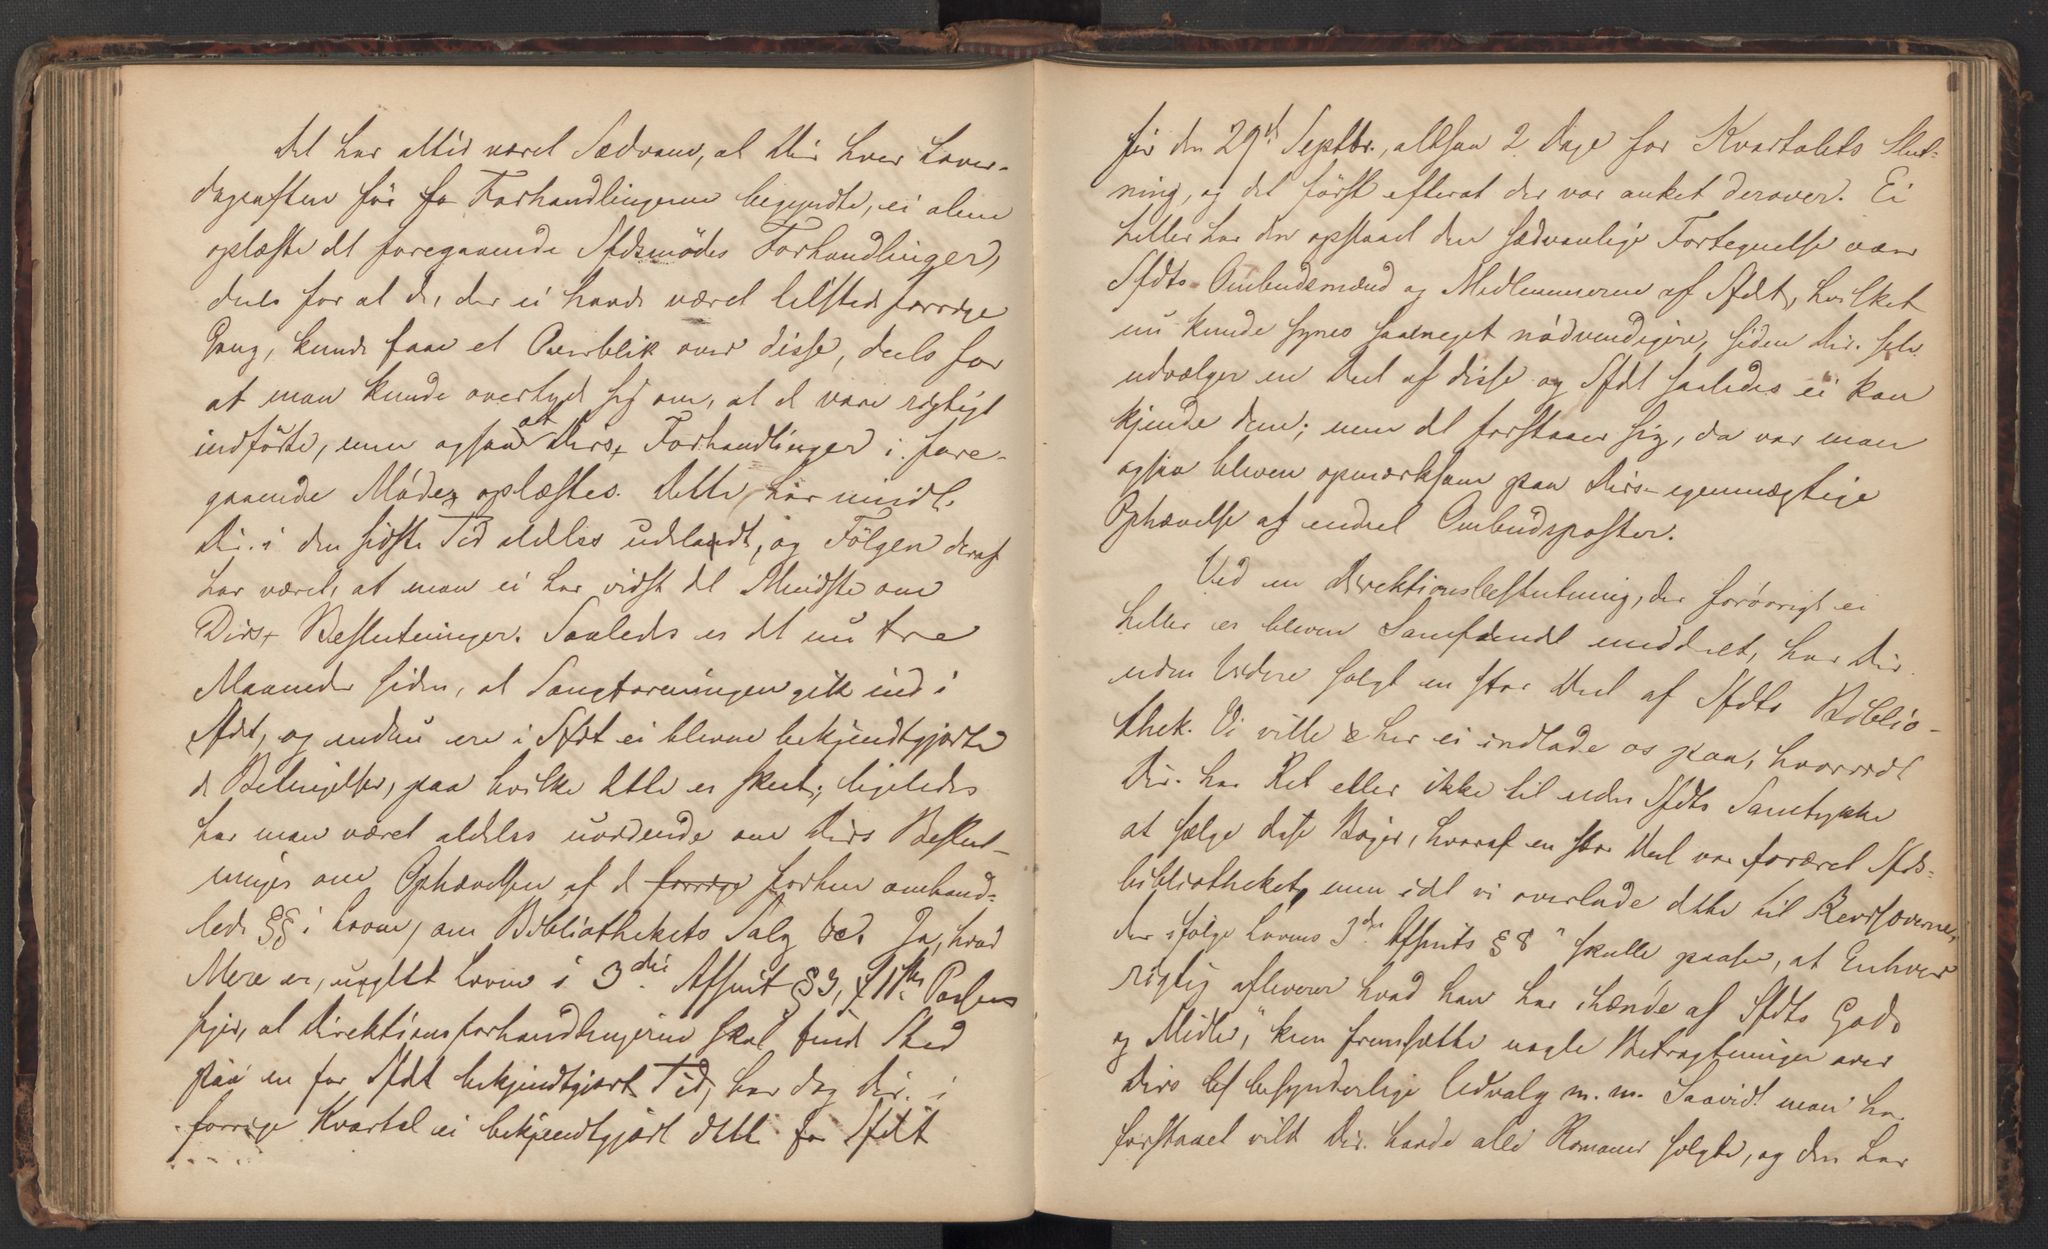 Det har altid været Sædvane, at Dir hver Løver-
dagaften før fo Forhandlingerne begyndte, ei alene
oplæste det foregaaende Sfdsmødes Forhandlinger,
deels for at de, der ei havde været tilstede forrige
Gang, kunde faae et Overblik over disse, deels for
at man kunde overtyde sig om, at de vare rigtigt
indførte, men ogsaa at Dirs Forhandlinger i fore-
gaaende Møde oplæstes. Dette har imidl.
Dir. i den sidste Tid aldeles udeladt, og Følgen deraf
har været, at man ei har vidst det Mindste om
Dirs Beslutninger. Saaledes er det nu tre
Maaneder siden, at Sangforeningen gik ind i
Sfdt, og endnu ere i Sfdt ei blevne bekjendtgjorte
de Betingelser, paa hvilke dette er skeet; ligeledes
har man været aldeles uvidende om Dirs Beslut-
ninger om Ophævelsen af de forrige forhen omhand-
lede §§ i Loven, om Bibliothekets Salg &c. Ja, hvad
Mere er, uagtet Loven i 3die Afsnit § 3, 11te Passus
siger, at Direktionsforhandlingerne skal finde Sted
paa en for Sfdt bekjendtgjort Tid, har dog Dir. i
forrige Kvartal ei bekjendtgjort dette for Sfdt
før den 29d Septbr., altsaa 2 Dage før Kvartalets Slut-
ning, og det først efterat der var anket derover. Ei
heller har der opstaaet den sædvanlige Fortegnelse over
Sfdts Ombudsmænd og Medlemmerne af Sfdt, hvilket
nu kunde synes saameget nødvendigere, siden Dir. selv
udvælger en Deel af disse og Sfdt saaledes ei kan
kjende dem; men det forstaaer sig, da var man
ogsaa bleven opmærksom paa Dirs egenmægtige
Ophævelse af endeel Ombudsposter.
Ved en Direktionsbeslutning, der forøvrigt ei
heller er bleven Samfundet meddeelt, har Dir.
uden Videre solgt en stor Deel af Sfdts Biblio-
thek. Vi ville her ei indlade os paa, hvorvidt
Dir. har Ret eller ikke til uden Sfdts Samtykke
at sælge disse Bøger, hvoraf en stor Deel var foræret Sfds-
bibliotheket, men idet vi overlade dette til Revisorerne,
der ifølge Lovens 3die Afsnits § 8 "skulle paasee, at Enhver
rigtig afleverer hvad han har ihænde af Sfdts Gods
og Midler," kun fremsætte nogle Betragtninger over
Dirs bes besynderlige Udvalg m. m. Saavidt man ha.
forstaaet vilde Dir. havde alle Romaner solgte, og den har